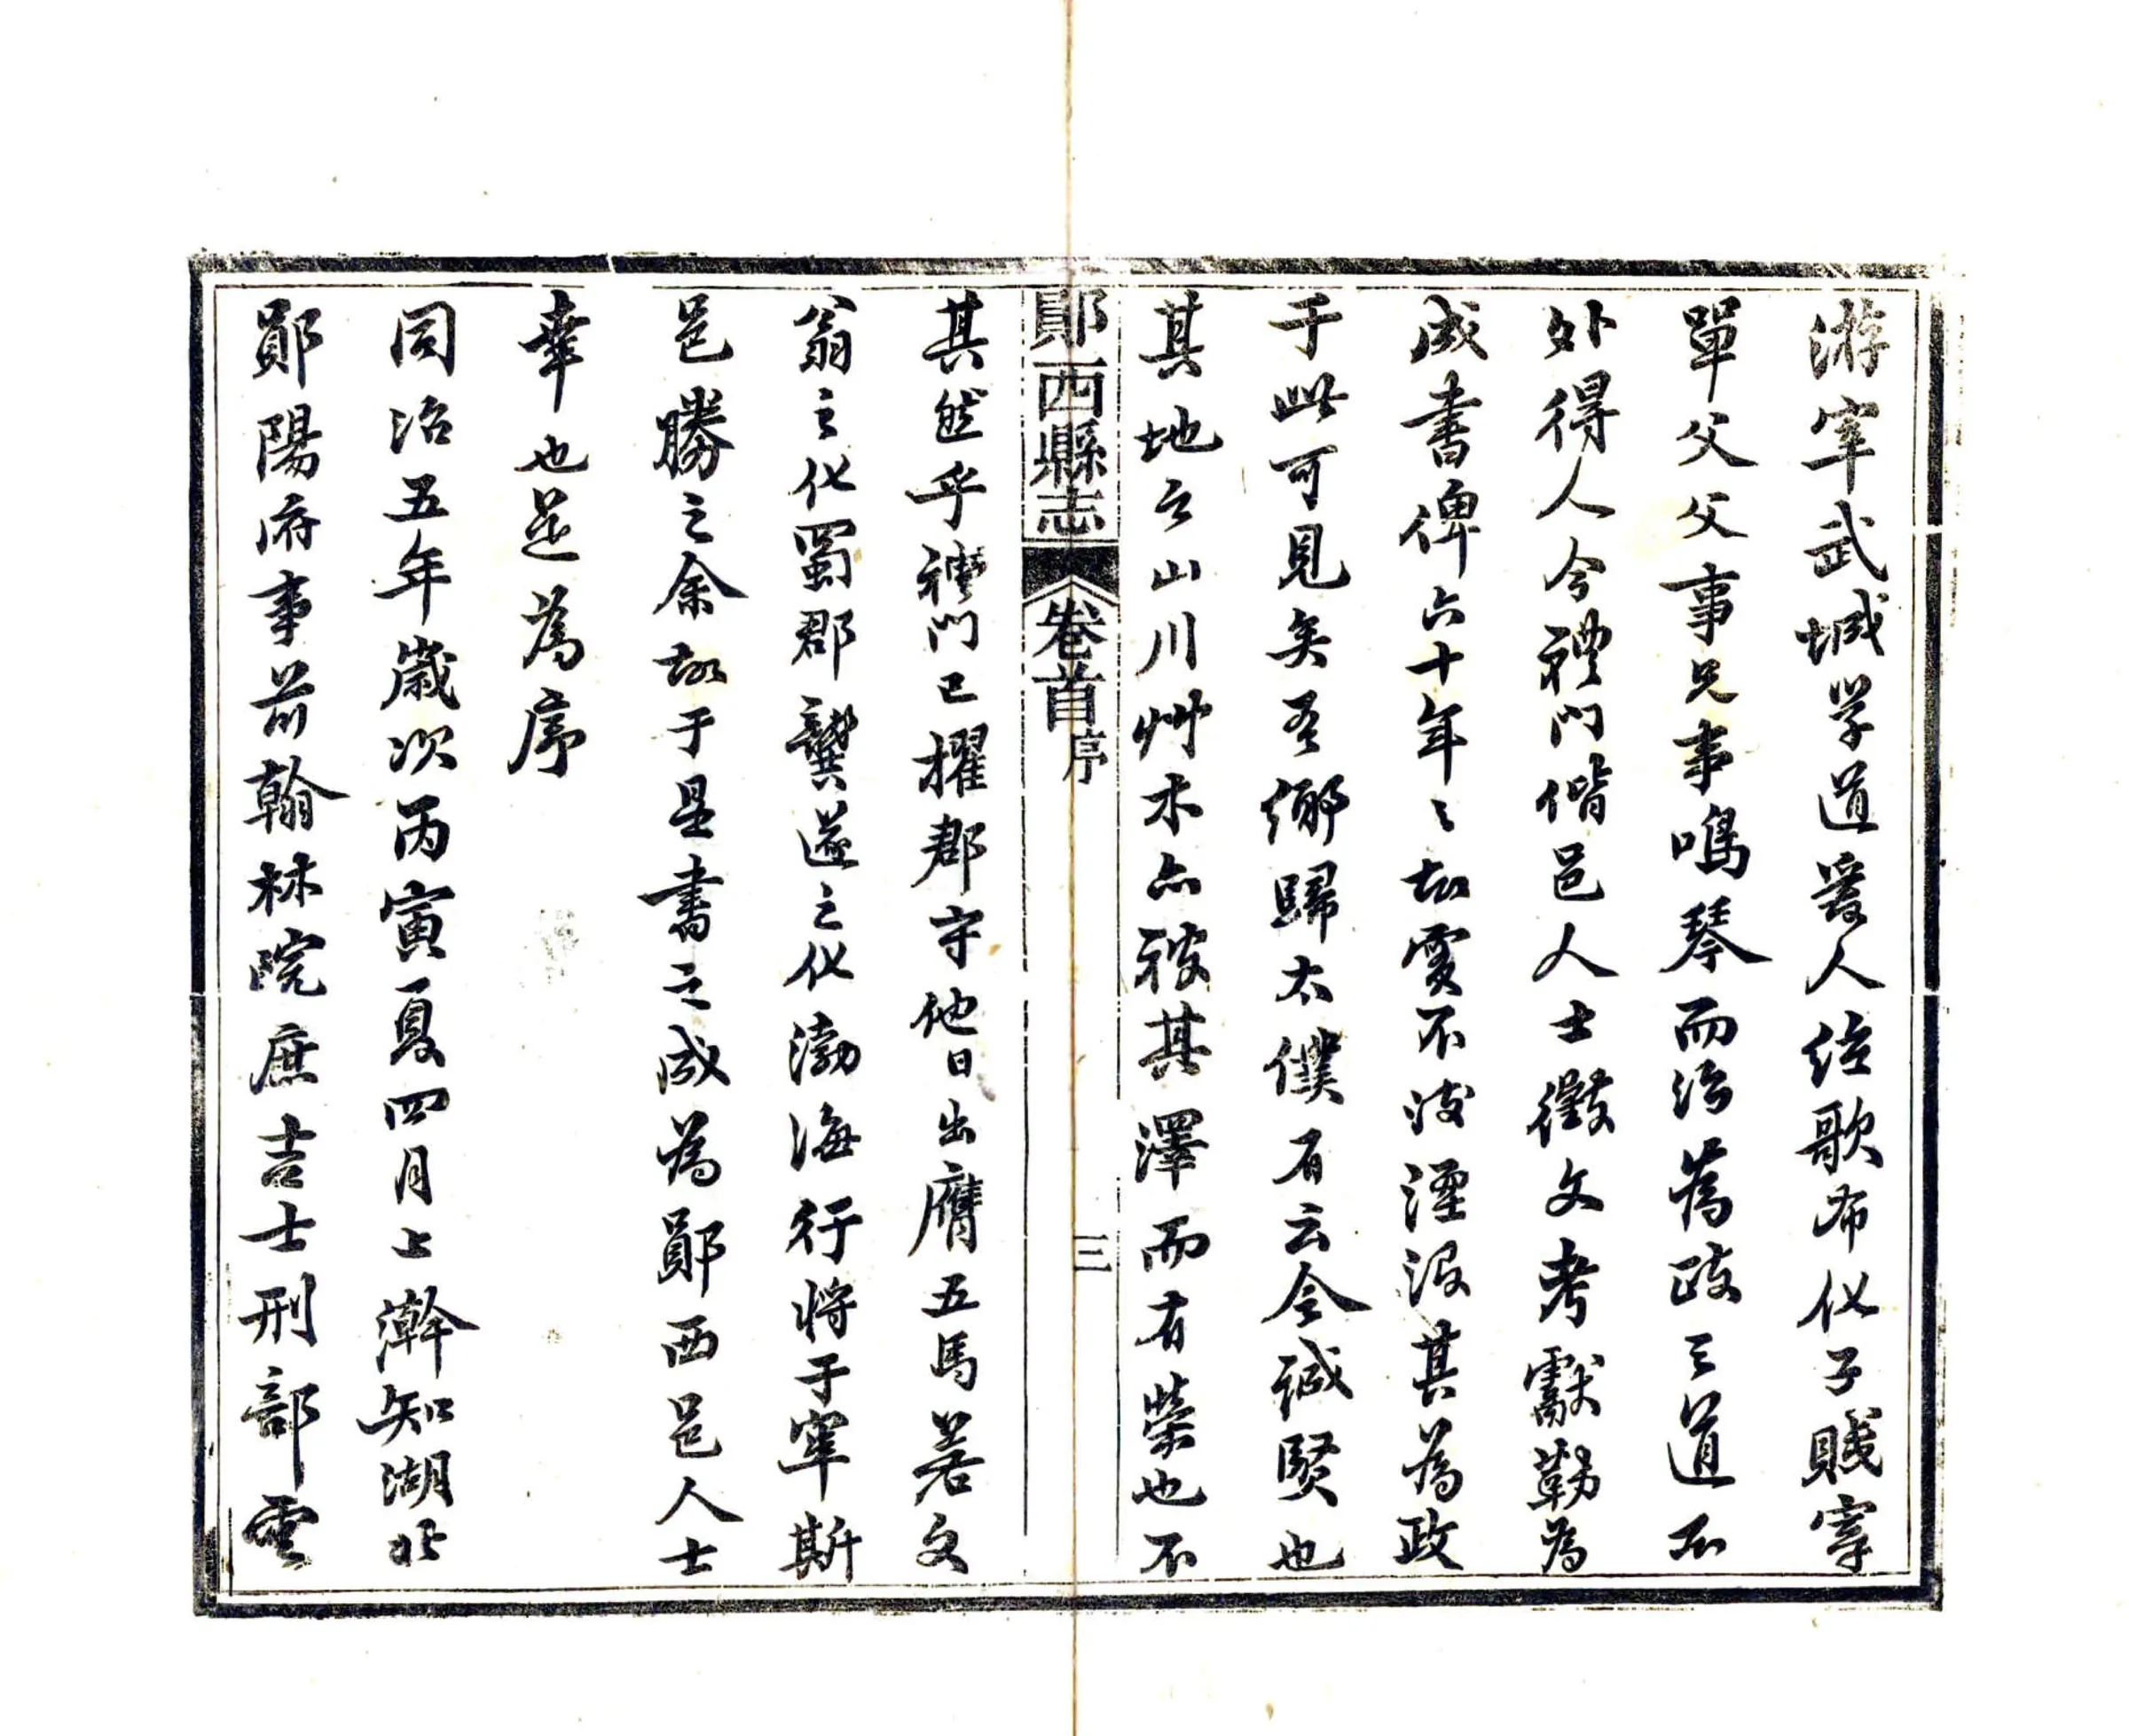 游宰武城学道爱人弦歌布化子賤宰
單父父事兄事鳴琴而治為政之道不
外得人今禮門偕邑人士徵文考獻勒為
成書俾六十年之故實不致湮沒其為政
于此可見矣吾鄉歸太僕有云令誠賢也
其地之山川艸木亦被其澤而有榮也不
鄖西縣志 卷首 序 三
其然乎禮門已擢郡守他日出膺五馬若文
翁之化蜀郡龔遂之化渤海行將于宰斯
邑勝之余故于是書之成為鄖西邑人士
幸也是為序
同治五年歲次丙寅夏四月上澣知湖北
鄖陽府事前翰林院庶吉士刑部雲